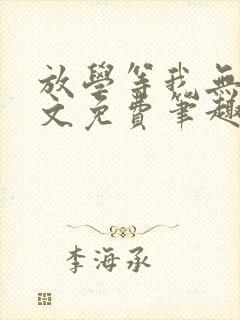 放學等我無
文免費筆趣
李海承